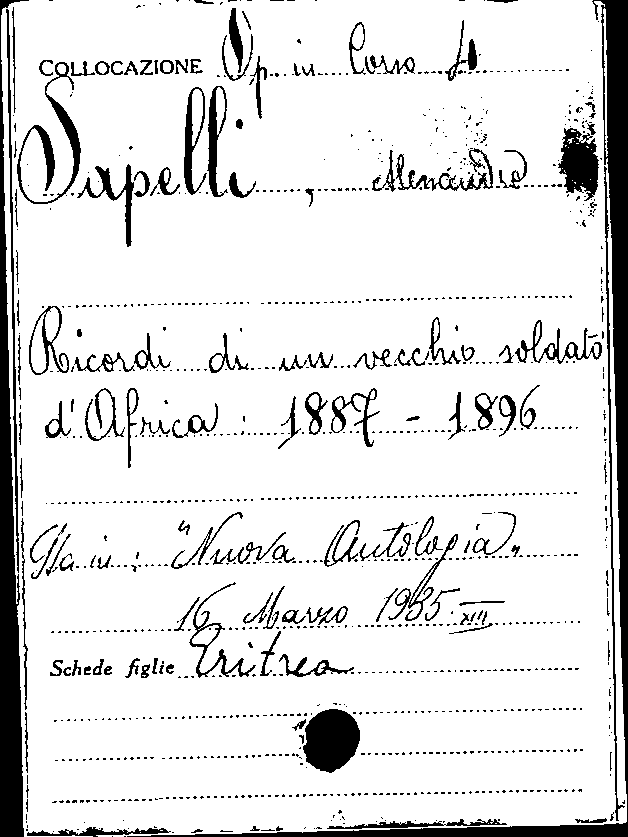 COLLOCAZIONE Op. in Corso
Sapelli, Alessandro
Ricordi di un vecchio soldato
d'Africa : 1887 - 1896
Sta in : "Nuova Antologia"
16 Marzo 1935. XIII
Schede figlie Eritrea